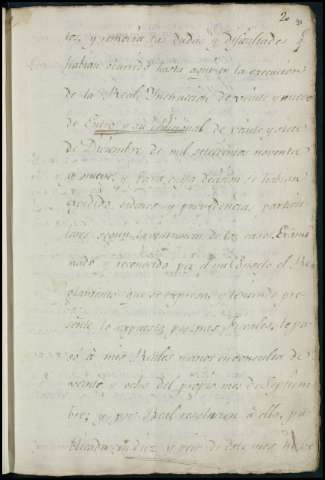 2
tos, y removía las dudas y dificultades q
habian ocurrido hasta aqui en la execucion
de la Real Instruccion de veinte y nueve
de Enero, y su adicional de veinte y siete
de Diciembre de mil setecientos noventa
y nueve, y para cuya decision se habian
expedido ordenes y providencias particu
lares, segun la ocurrencia de los casos. Exâmi
nado y reconocido por el mi Consejo el Re
glamento que se expresa y teniendo pre
sente lo expuesto por mis Fiscales, lo pa
só á mis Reales manos en consulta de
veinte y ocho del propio mes de Septiem
bre; y por Real resolucion á ella, pu
blicada en diez y seis de este mes, he ve